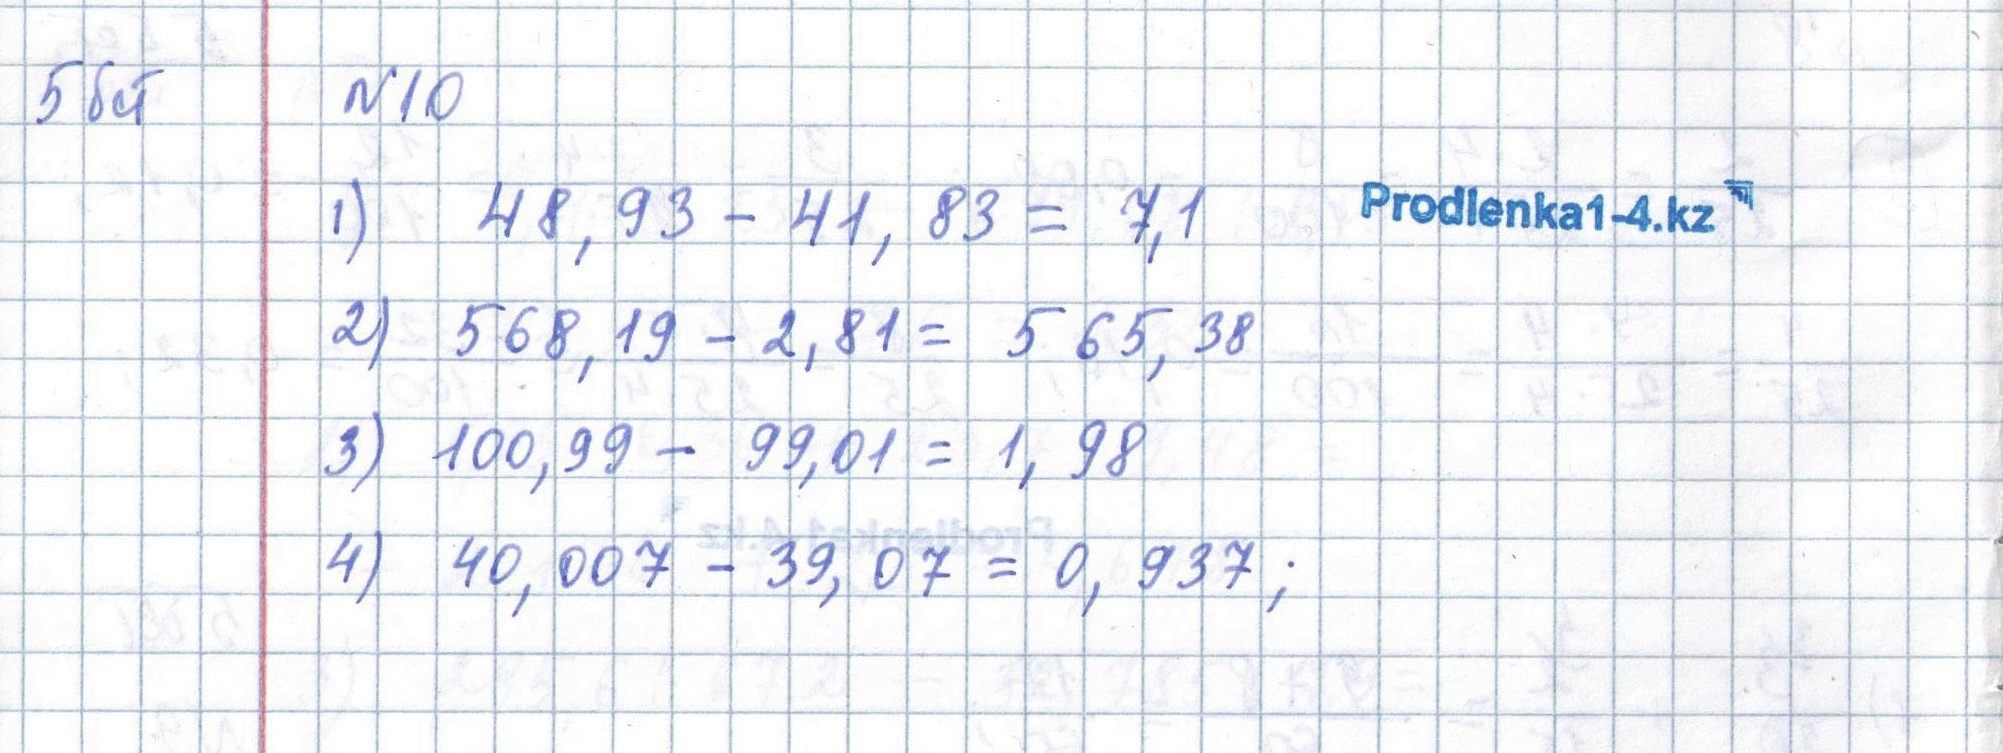 5 бет №10
1) 48,93 - 41,83 = 7,1 Prodlenka1-4.kz
2) 568,19 - 2,81 = 565,38
3) 100,99 - 99,01 = 1,98
4) 40,007 - 39,07 = 0,937;